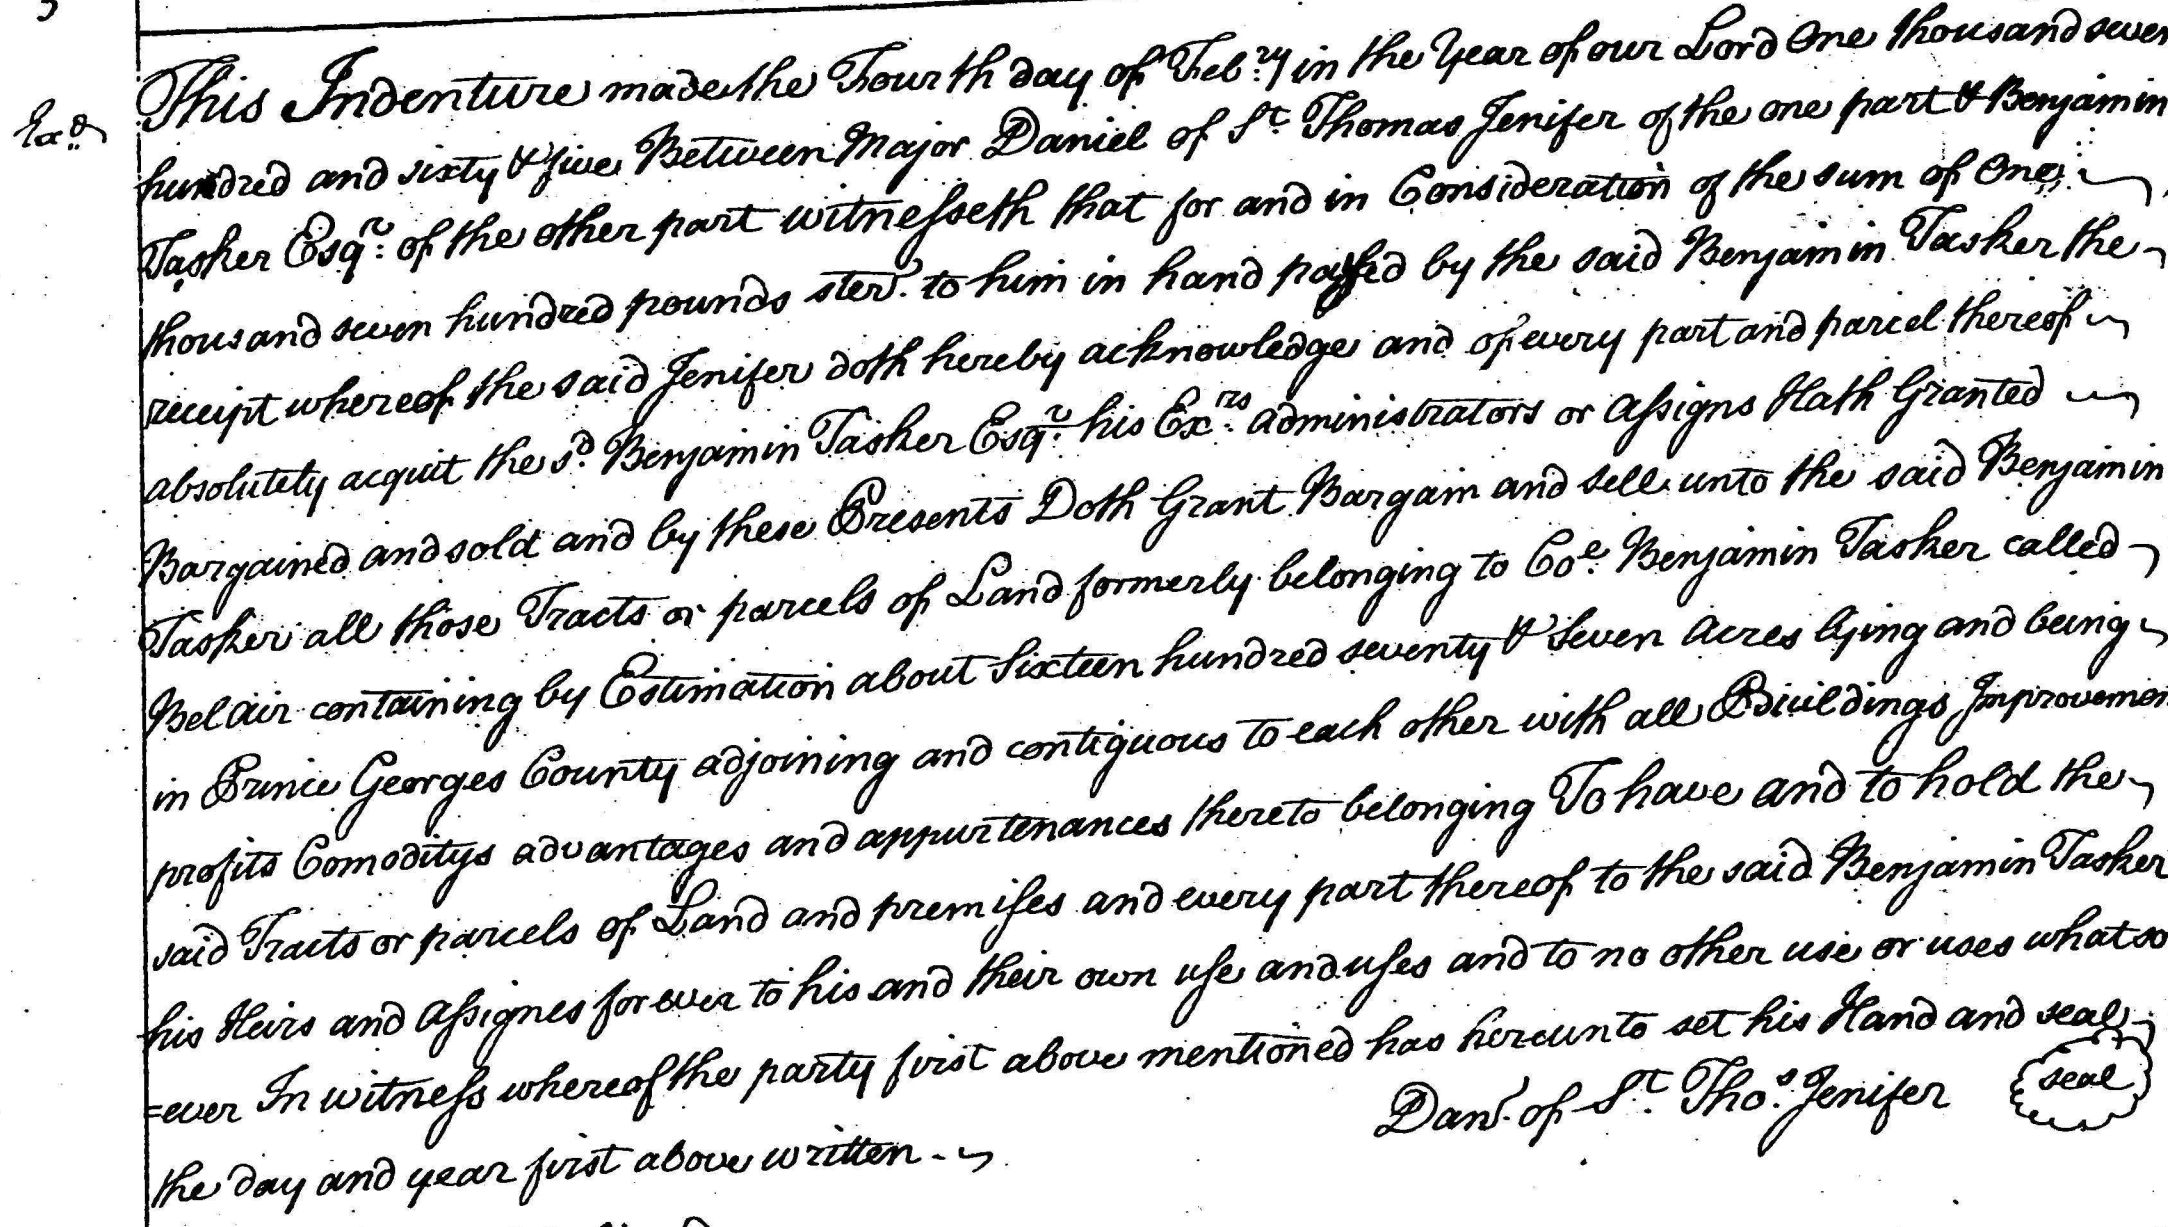 This Indenture made the Fourth day of Feb:ry in the Year of our Lord One thousand seven
Exd
hundred and sixty & five Between Major Daniel of St. Thomas Jenifer of the one part & Benjamin
Tasker Esqr. of the other part witnesseth that for and in Consideration of the sum of One
thousand seven hundred pounds sterl. to him in hand passed by the said Benjamin Tasker the
receipt whereof the said Jenifer doth hereby acknowledge and of every part and parcel thereof
absolutely acquit the sd. Benjamin Tasker Esqr. his Exrs. administrators or assigns Hath Granted
Bargained and sold and by these Presents Doth Grant Bargain and sell unto the said Benjamin
Tasker all those Tracts or parcels of Land formerly belonging to Col. Benjamin Tasker called
Belair containing by Estimation about Sixteen hundred seventy & Seven Acres lying and being
in Prince Georges County adjoining and contiguous to each other with all Buildings Improvemen
profits Comoditys advantages and appurtenances thereto belonging To have and to hold the
said Tracts or parcels of Land and premises and every part thereof to the said Benjamin Tasker
his Heirs and Assignes for ever to his and their own use and uses and to no other use or uses whatso
=ever In witness whereof the party first above mentioned has hereunto set his Hand and seal
the day and year first above written
Danl. of St. Thos. Jenifer
seal